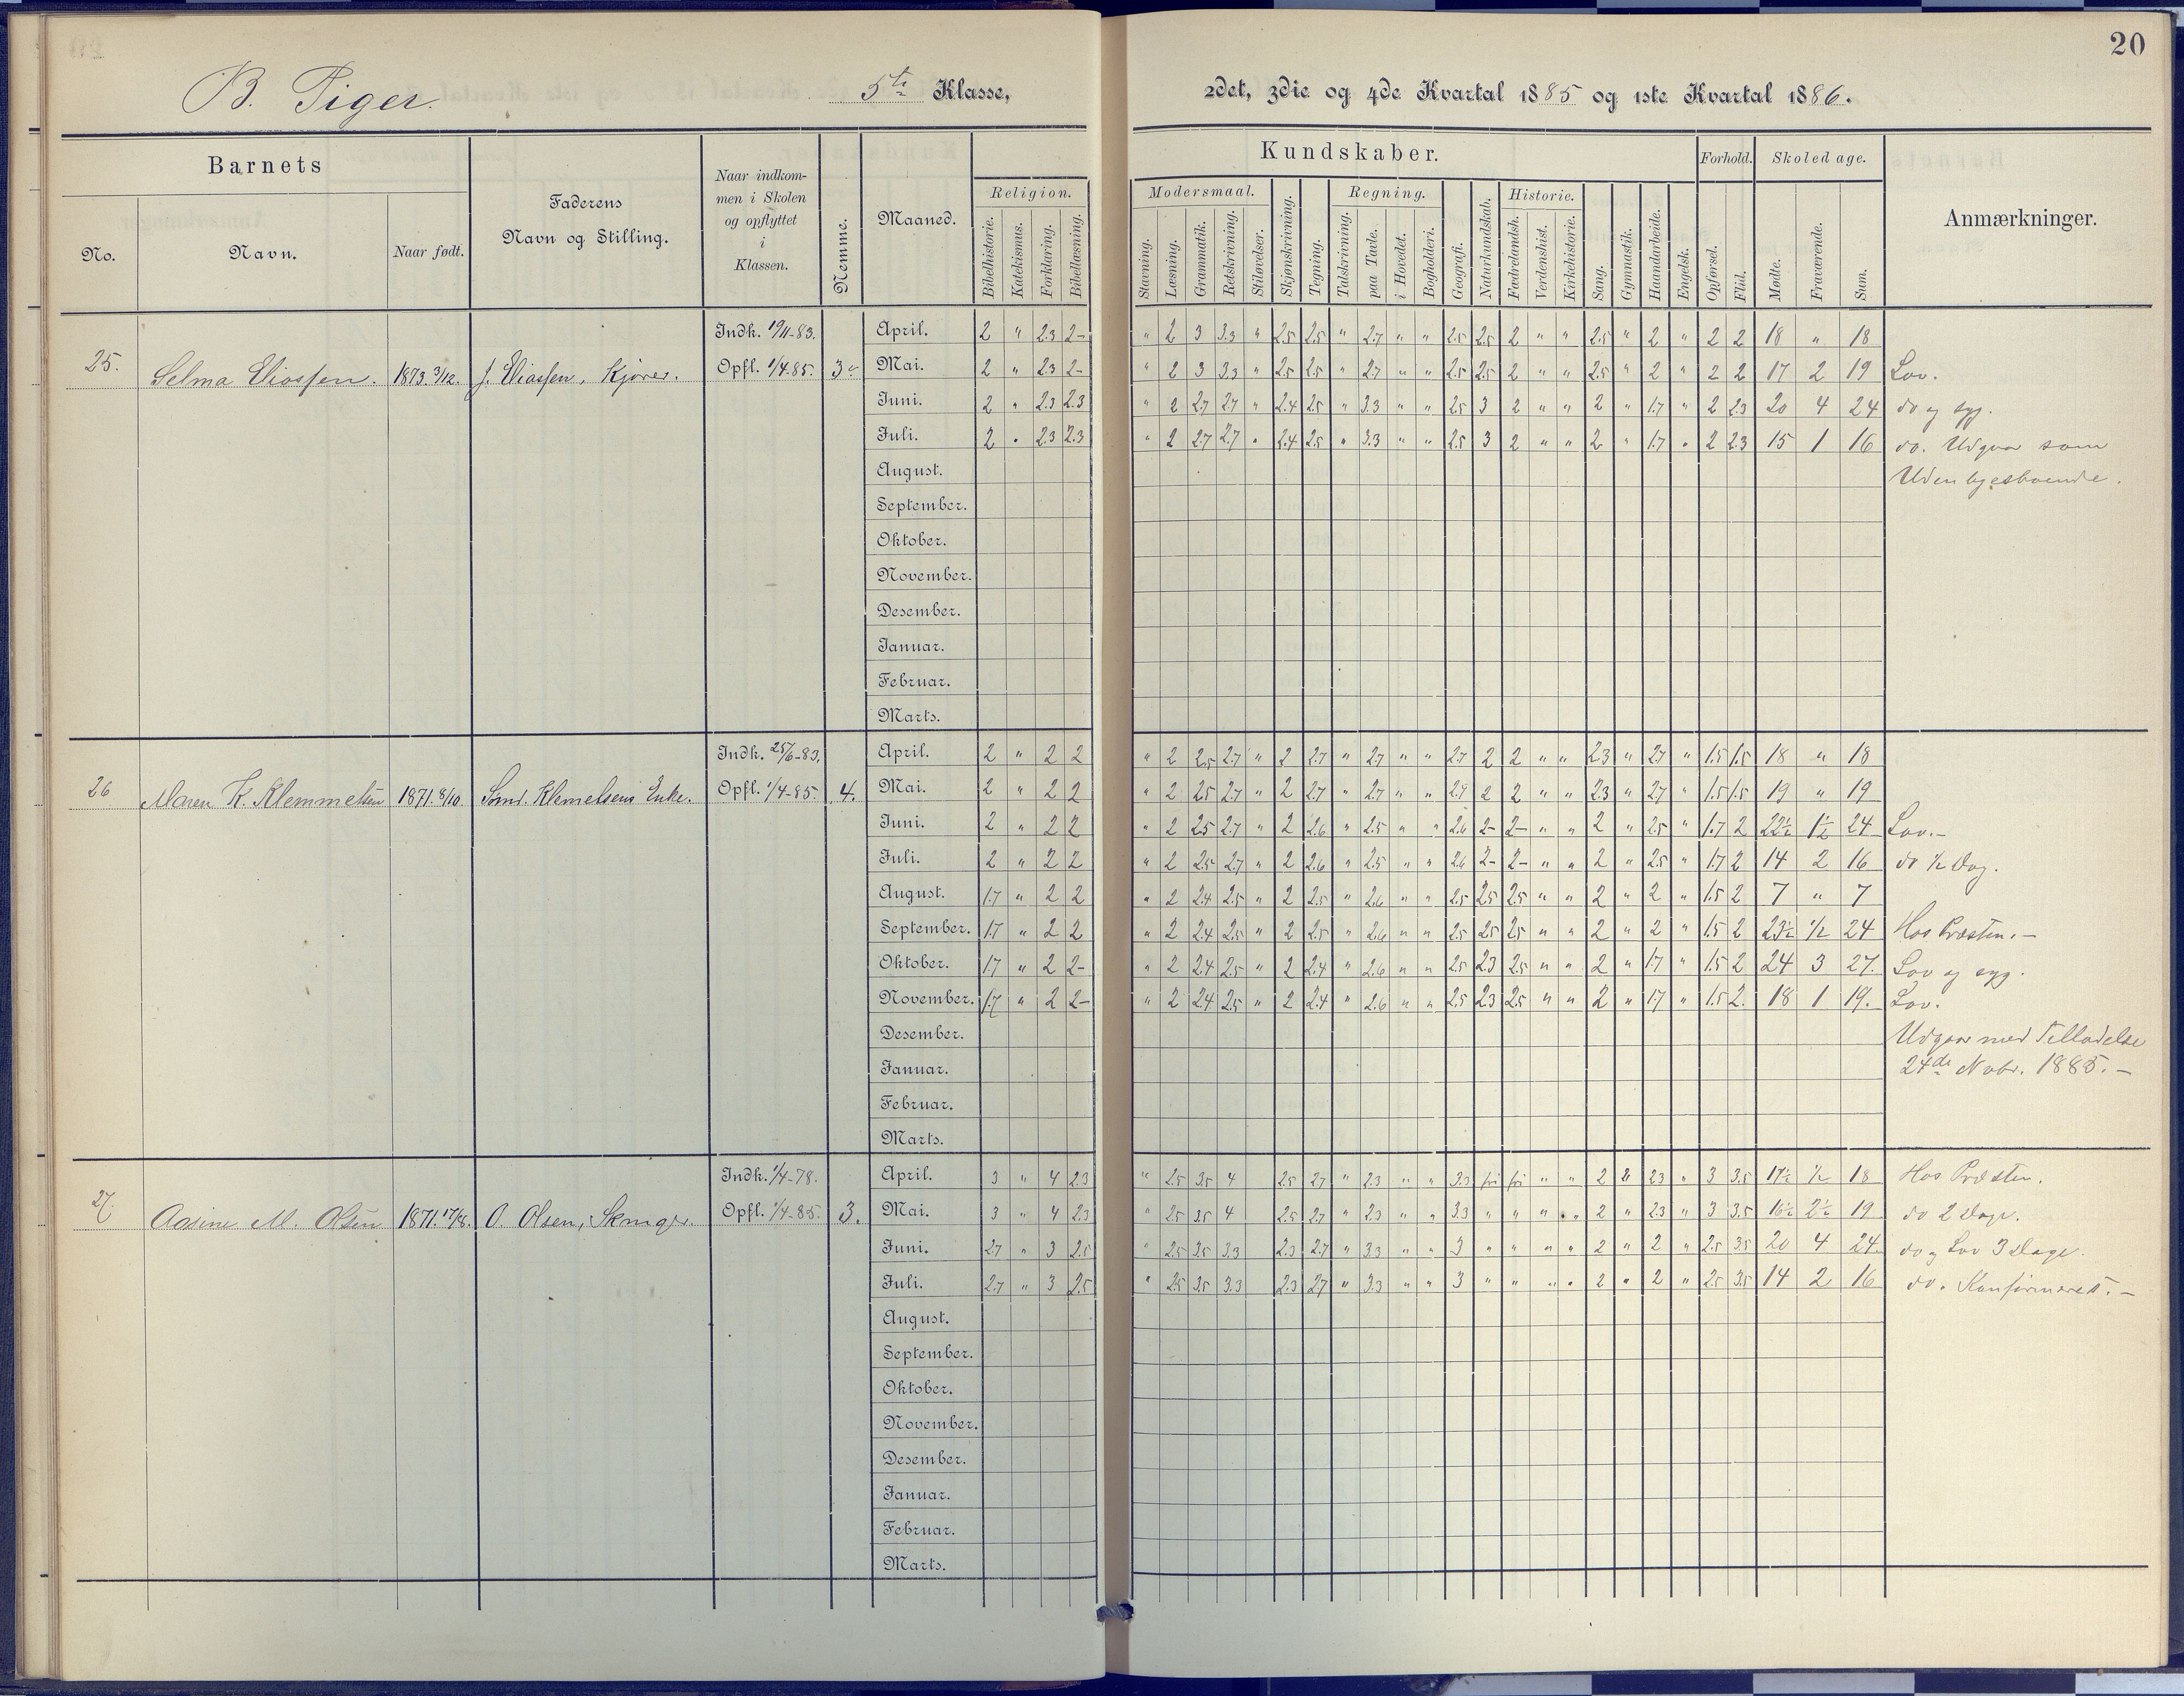 20
B. Piger. 5te Klasse, 2det, 3die og 4de Kvartal 1885 og 1ste Kvartal 1886.
Barnets
No.
Navn.
Naar født.
Faderens
Navn og Stilling.
Naar indkom-
men i Skolen
og opflyttet
i
Klassen.
Nemme.
Maaned.
Kundskaber.
Religion.
Bibelhistorie. Katekismus. Forklaring. Bibellæsning.
Modersmaal.
Stavning. Læsning. Grammatik. Retskrivning. Stiløvelser.
Skjønskrivning. Tegning.
Regning.
Talskrivning. paa Tavle. i Hovedet. Bogholderi.
Geografi. Naturkundskab.
Historie.
Fædrelandsh. Verdenshist. Kirkehistorie.
Sang. Gymnastik. Haandarbeide. Engelsk.
Forhold.
Opførsel. Flid.
Skoledage.
Mødte. Fraværende. Sum.
Anmærkninger.
25. Selma Eliassen. 1873 3/12. J. Eliassen, Kjører. Indk. 19/11-83. Opfl. 1/4 85. 3
April. 2 " 2.3 2- " 2 3 3.3 " 2.5 2.5 " 2.7 " " 2.5 2.5 2 " " 2.5 " 2 " 2 2 18 " 18
Mai. 2 " 2.3 2- " 2 3 3.3 " 2.5 2.5 " 2.7 " " 2.5 2.5 2 " " 2.5 " 2 " 2 2 17 2 19 Lov.
Juni. 2 " 2.3 2.3 " 2 2.7 2.7 " 2.4 2.5 " 3.3 " " 2.5 3 2 " " 2 " 1.7 " 2 2.3 20 4 24 do og syg.
Juli. 2 " 2.3 2.3 " 2 2.7 2.7 " 2.4 2.5 " 3.3 " " 2.5 3 2 " " 2 " 1.7 " 2 2.3 15 1 16 do. Udgaar som
August. Udenbyesboende.
September.
Oktober.
November.
Desember.
Januar.
Februar.
Marts.
26 Maren K. Klemmetsen 1871. 8/10. Klemetsens Enke. Indk. 25/6-83. Opfl. 1/4-85. 4.
April. 2 " 2 2 " 2 2.5 2.7 " 2 2.7 " 2.7 " " 2.7 2 2 " " 2.3 " 2.7 " 1.5 1.5 18 " 18
Mai. 2 " 2 2 " 2 2.5 2.7 " 2 2.7 " 2.7 " " 2.7 2 2 " " 2.3 " 2.7 " 1.5 1.5 19 " 19
Juni. 2 " 2 2 " 2 2.5 2.7 " 2 2.6 " 2.5 " " 2.6 2- 2- " " 2 " 2.5 " 1.7 2 22½ 1½ 24 Lov.-
Juli. 2 " 2 2 " 2 2.5 2.7 " 2 2.6 " 2.5 " " 2.6 2- 2- " " 2 " 2.5 " 1.7 2 14 2 16 do ½ Dag.
August. 1.7 " 2 2 " 2 2.4 2.5 " 2 2.5 " 2.6 " " 2.5 2.5 2.5 " " 2 " 2 " 1.5 2 7 " 7
September. 1.7 " 2 2 " 2 2.4 2.5 " 2 2.5 " 2.6 " " 2.5 2.5 2.5 " " 2 " 2 " 1.5 2 23½ ½ 24 Hos Præsten.-
Oktober. 1.7 " 2 2- " 2 2.4 2.5 " 2 2.4 " 2.6 " " 2.5 2.3 2.5 " " 2 " 1.7 " 1.5 2 24 3 27. Lov og syg.
November. 1.7 " 2 2- " 2 2.4 2.5 " 2 2.4 " 2.6 " " 2.5 2.3 2.5 " " 2 " 1.7 " 1.5 2. 18 1 19. Lov.
Desember. Udgaar med Tilladelse
Januar. 24de Novbr. 1885.-
Februar.
Marts.
27. Aasine M. Olsen 1871. 17/8. O. Olsen, Indk. 1/4-78. Opfl. 1/4-85. 3.
April. 3 " 4 2.3 " 2.5 3.5 4 2.5 2.7 " 2.3 " " 3.3 fri fri " " 2 2 2.3 " 3 3.5 17½ ½ 18 Hos Præsten.
Mai. 3 " 4 2.3 " 2.5 3.5 4 2.5 2.7 " 2.3 " " 3.3 " " " " 2 " 2.3 " 3 3.5 16½ 2½ 19 do 2 Dage.
Juni. 2.7 " 3 2.5 " 2.5 3.5 3.3 2.3 2.7 " 3.3 " " 3 " " " " 2 " 2 " 2.5 3.5 20 4 24. do og Lov 3 Dage.
Juli. 2.7 " 3 2.5 " 2.5 3.5 3.3 2.3 2.7 " 3.3 " " 3 " " " " 2 " 2 " 2.5 3.5 14 2 16 do. Konfirmeret.-
August.
September.
Oktober.
November.
Desember.
Januar.
Februar.
Marts.